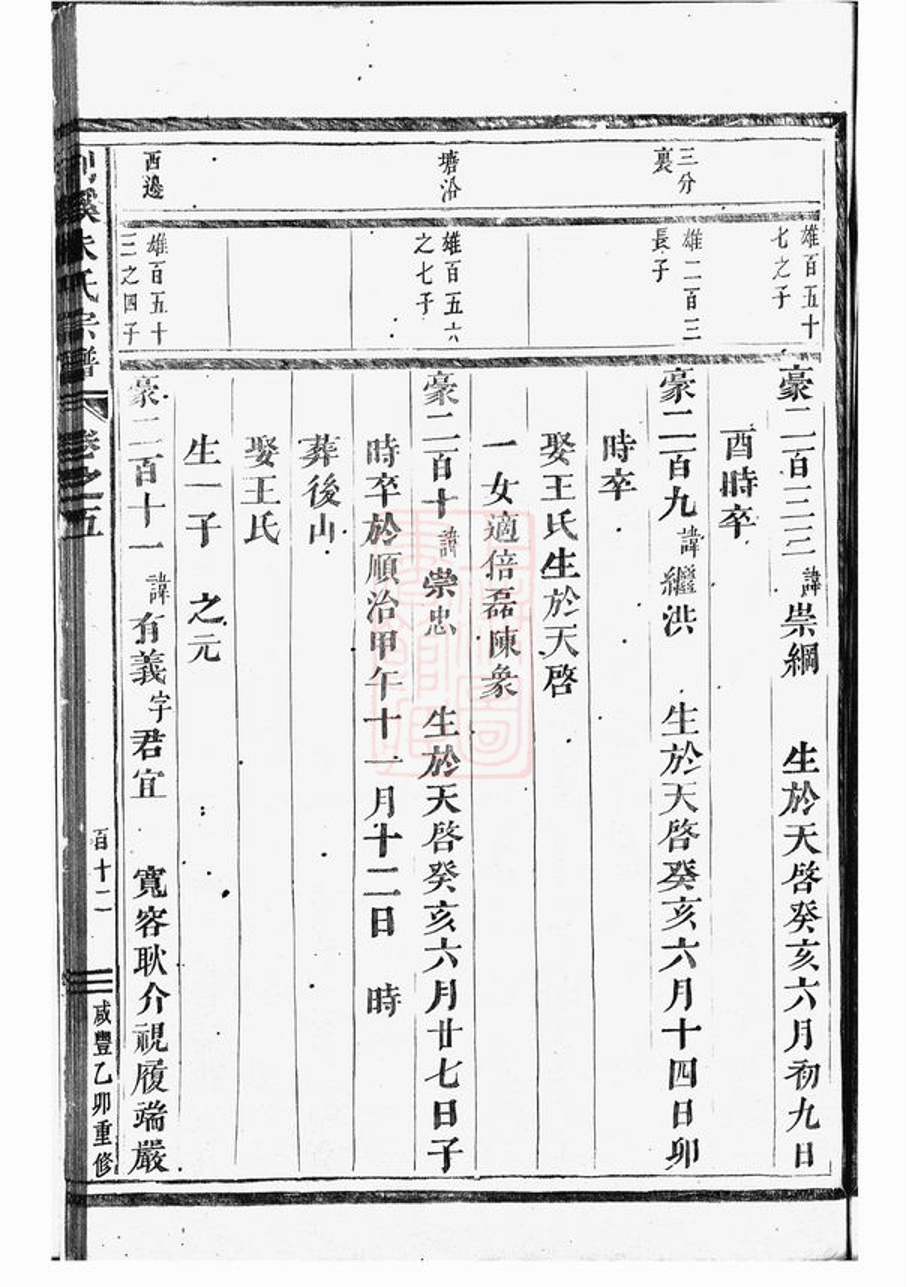 三分
裏
塘沿
西邊
雄百五十
七之子
雄二百三
長子
雄百五六
之七子
雄百五十
三之四子
豪二百三三 諱崇綱 生於天啓癸亥六月初九日
酉時卒
豪二百九 諱繼洪 生於天啓癸亥六月十四日卯
時卒
娶王氏生於天啓
一女適倍磊陳象
豪二百十 諱崇忠 生於天啓癸亥六月廿七日子
時卒於順治甲午十一月十二日 時
葬後山
娶王氏
生一子 之元
豪二百十一 諱有義字君宜 寬容耿介視履端嚴
溪朱氏宗譜 卷之五 百十二 咸豐乙卯重修